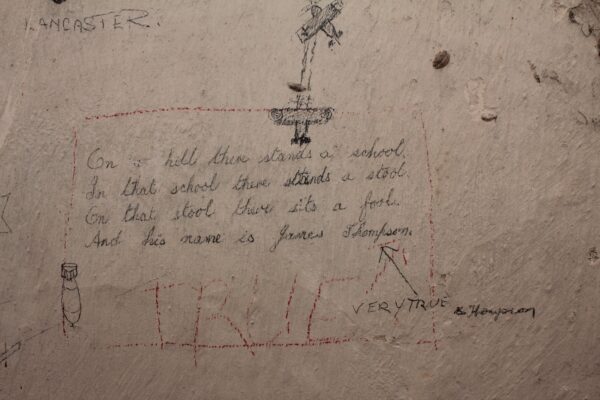 LANCASTER.
On a hill there stands a school.
In that school there stands a stool.
On that stool there sits a fool.
And his name is James Thompson.
TRUE
VERY TRUE
Thompson